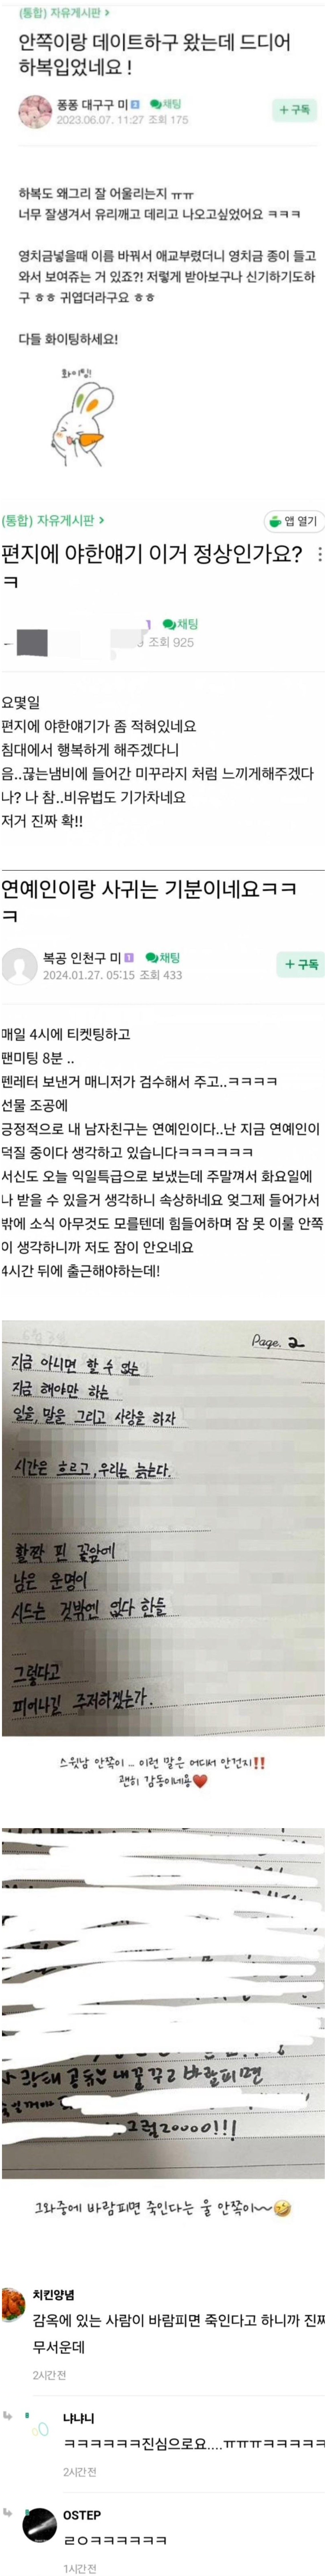 (통합) 자유게시판 >
안쪽이랑 데이트하구 왔는데 드디어
하복입었네요 !
퐁퐁 대구구 미 3 채팅
2023.06.07. 11:27 조회 175
+ 구독
하복도 왜그리 잘 어울리는지 ㅠㅠ
너무 잘생겨서 유리깨고 데리고 나오고싶었어요 ㅋㅋㅋ
영치금넣을때 이름 바꿔서 애교부렸더니 영치금 종이 들고
와서 보여쥬는 거 있죠?! 저렇게 받아보구나 신기하기도하
구 ㅎㅎ 귀엽더라구요 ㅎㅎ
다들 화이팅하세요!
화이팅!
(통합) 자유게시판 >
앱 열기
편지에 야한얘기 이거 정상인가요?
ㅋ
채팅
조회 925
요몇일
편지에 야한얘기가 좀 적혀있네요
침대에서 행복하게 해주겠다니
음..끊는냄비에 들어간 미꾸라지 처럼 느끼게해주겠다
나? 나 참..비유법도 기가차네요
저거 진짜 확!!
연예인이랑 사귀는 기분이네요ㅋㅋ
ㅋ
복공 인천구 미 1 채팅
2024.01.27. 05:15 조회 433
+ 구독
매일 4시에 티켓팅하고
팬미팅 8분 ..
펜레터 보낸거 매니저가 검수해서 주고..ㅋㅋㅋㅋ
선물 조공에
긍정적으로 내 남자친구는 연예인이다..난 지금 연예인이
덕질 중이다 생각하고 있습니다ㅋㅋㅋㅋㅋㅋ
서신도 오늘 익일특급으로 보냈는데 주말껴서 화요일에
나 받을 수 있을거 생각하니 속상하네요 엊그제 들어가서
밖에 소식 아무것도 모를텐데 힘들어하며 잠 못 이룰 안쪽
이 생각하니까 저도 잠이 안오네요
4시간 뒤에 출근해야하는데!
Page. 2
지금 아니면 할 수 없는
지금 해야만 하는
일을, 말을 그리고 사랑을 하자
시간은 흐르고, 우리는 늙는다.
활짝 핀 꽃앞에
남은 운명이
시드는 것밖엔 없다 한들
그렇다고
피어나길 주저하겠는가.
스윗남 안쪽이 .. 이런 말은 어디서 안건지!!
괜히 감동이네용
내꿈꾸고 바람피면
그럼20000!!!
그와중에 바람피면 죽인다는 울 안쪽이~
치킨양념
감옥에 있는 사람이 바람피면 죽인다고 하니까 진짜
무서운데
2시간 전
냐냐니
ㅋㅋㅋㅋㅋㅋ진심으로요....ㅠㅠㅠㅋㅋㅋㅋㅋ
2시간 전
OSTEP
ㄹㅇㅋㅋㅋㅋㅋㅋ
1시간 전